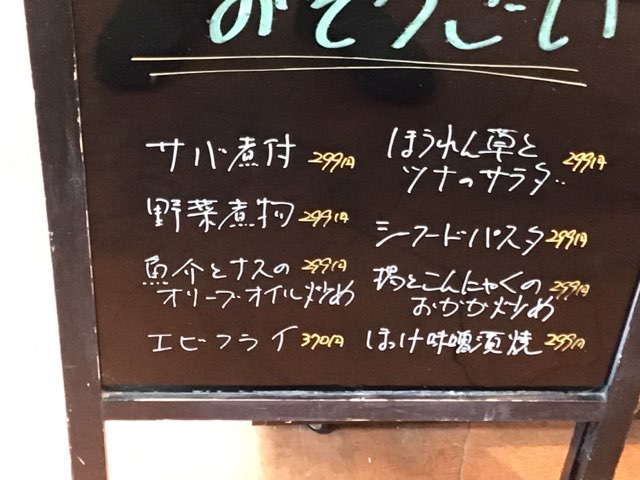 おそうざい
サバ煮付 299円
野菜煮物 299円
魚介とナスの 299円
オリーブオイル炒め
エビフライ 370円
ほうれん草と
ツナのサラダ 299円
シーフードパスタ 299円
とこんにゃくの 299円
おかか炒め
ほっけ味噌漬焼 299円